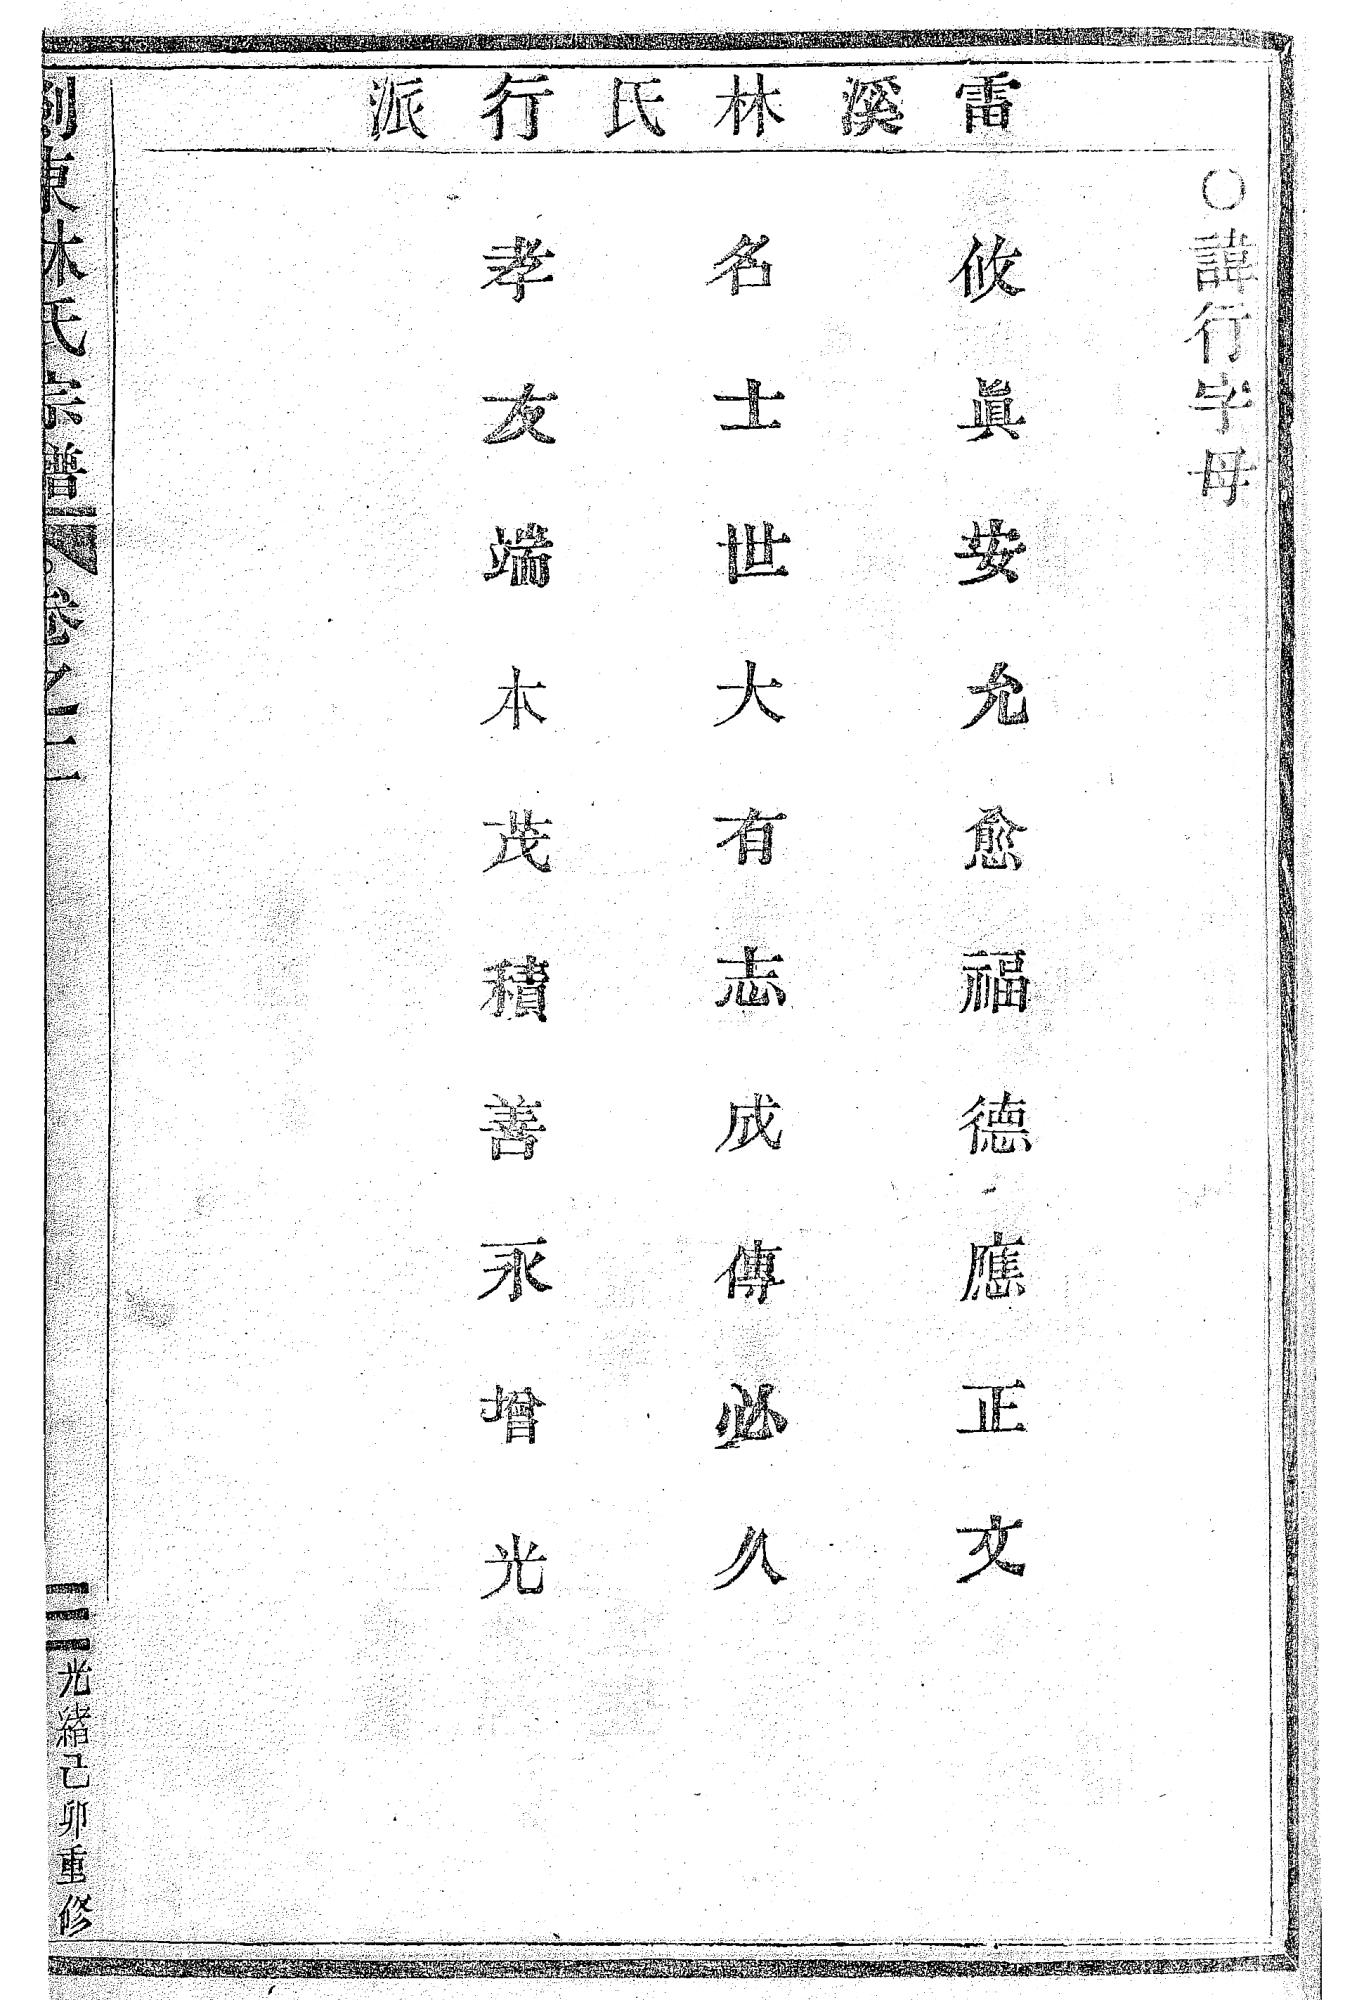 雷溪林氏行派
○諱行字母
攸眞安允愈福德應正文
名士世大有志成傳必久
孝友端本茂積善永增光
剡東林氏宗譜
卷之二
三
光緒己卯重修